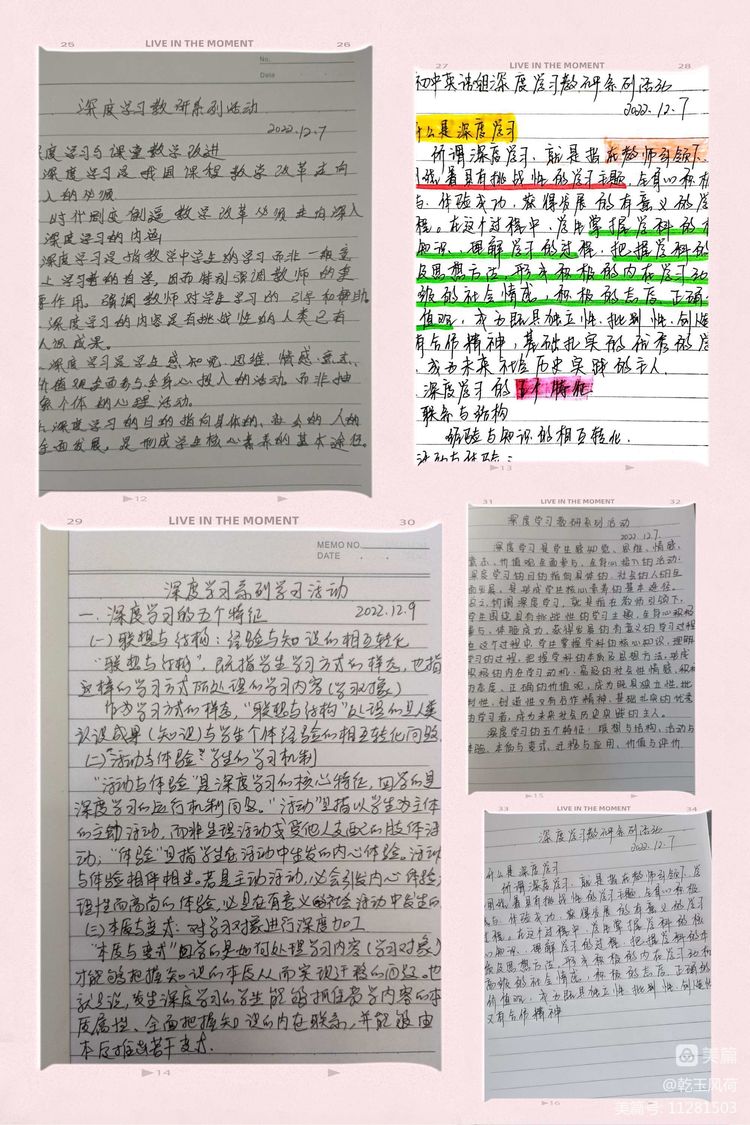 25 LIVE IN THE MOMENT 26
No.
Date
深度学习教研系列活动
2022.12.7
度学习与课堂教学改进
深度学习是我国课程教学改革走向
入的必须
时代剧变倒逼教学改革必须走向深入
深度学习的内涵
深度学习是指教学中学生的学习而非一般意
上学习者的自学，因而特别强调教师的重
要作用。强调教师对学生学习的引导和帮助。
深度学习的内容是有挑战性的人类已有
认识成果。
深度学习是学生感知觉、思维、情感、意志、
价值观全面参与全身心投入的活动。而非抽
象个体的心理活动。
深度学习的目的指向具体的、社会的人的
全面发展，是形成学生核心素养的基本途径。
12
27 LIVE IN THE MOMENT 28
初中英语组深度学习教研系列活动
2022.12.7
什么是深度学习
所谓深度学习，就是指在教师引领下
围绕着具有挑战性的学习主题，全身心积极
与、体验成功、获得发展的有意义的学
程。在这个过程中，学生掌握学科的核
知识，理解学习的过程，把握学科的
及思想方法，形成积极的内在学习动
级的社会情感，积极的态度、正确
值观，成为既具独立性、批判性、创造
有合作精神，基础扎实的优秀的学
，成为未来社会历史实践的主人。
深度学习的五个特征
联系与结构
经验与知识的相互转化.
活动与体验：
13
29 LIVE IN THE MOMENT 30
MEMO NO.
DATE
深度学习系列学习活动
一、深度学习的五个特征 2022.12.9
(一)联想与结构：经验与知识的相互转化
"联想与结构"，既指学生学习方式的样态，也指
这样的学习方式所处理的学习内容(学习对象)
作为学习方式的样态，"联想与结构"处理的是人类
认识成果(知识)与学生个体经验的相互转化问题.
(二)活动与体验：学生的学习机制
"活动与体验"是深度学习的核心特征，回答的是
深度学习的运行机制问题。"活动"是指以学生为主体
的主动活动，而非生理活动或受他人支配的肢体活
动；"体验"是指学生在活动中生发的内心体验。活动
与体验相伴相生。若是主动活动，必会引发内心体验；
理性而高尚的体验，必是在有意义的社会活动中发生的
(三)本质与变式：对学习对象进行深度加工
"本质与变式"回答的是如何处理学习内容(学习对象)
才能够把握知识的本质从而实现迁移的问题。也
就是说，发生深度学习的学生能够抓住教学内容的本
质属性、全面把握知识的内在联系，并能够由
本质推出若干变式.
14
31 32
深度学习教研系列活动
2022.12.7.
深度学习是学生感知觉、思维、情感、
意志、价值观全面参与、全身心投入的活动.
深度学习的目的指向具体的、社会的人的全
面发展，是形成学生核心素养的基本途径。
所谓深度学习，就是指在教师引领下，
学生围绕具有挑战性的学习主题，全身心积极
参与、体验成功、获得发展的有意义的学习过程
在这个过程中，学生掌握学科的核心知识，理解
学习的过程，把握学科的本质及思想方法，形成
积极的内在学习动机、高级的社会性情感、积极
的态度、正确的价值观，成为既具独立性、批
判性、创造性又有合作精神，基础扎实的优秀
的学习者，成为未来社会历史实践的主人。
深度学习的五个特征：联想与结构、活动与
体验、本质与变式、迁移与应用、价值与评价
15
33 LIVE IN THE MOMENT 34
深度学习教研系列活动
2022.12.7
什么是深度学习
所谓深度学习，就是指在教师引领下，学
围绕着具有挑战性的学习主题，全身心积极
与、体验成功、获得发展的有意义的学习
过程。在这个过程中，学生掌握学科的核
心知识，理解学习的过程，把握学科的本
质及思想方法，形成积极的内在学习动机
高级的社会情感、积极的态度、正确的
价值观，成为既具独立性、批判性、创造性
又有合作精神
16
美篇
@乾玉风荷
美篇号：11281503